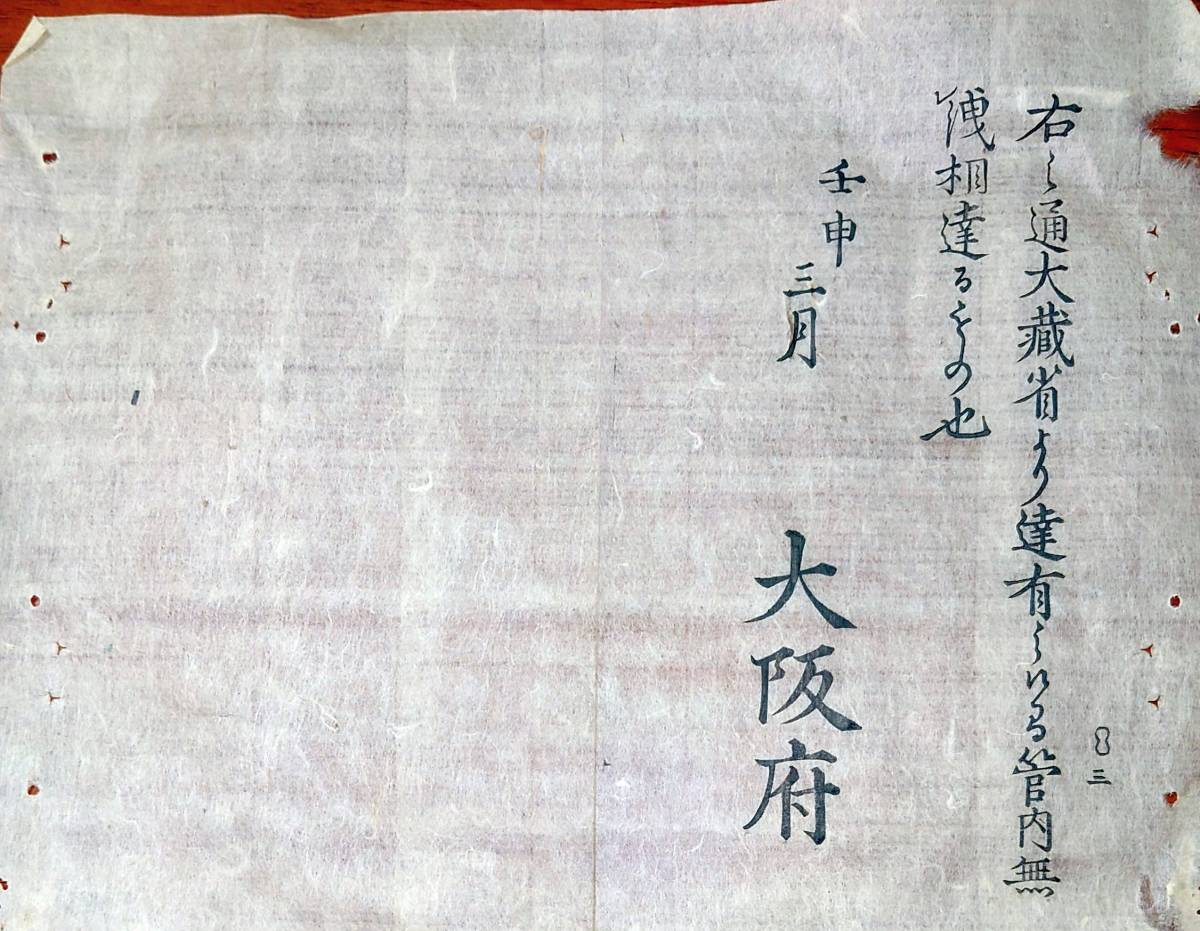 三
右之通大藏省より達有之候間管内無
洩相達るもの也
壬申
三月
大阪府